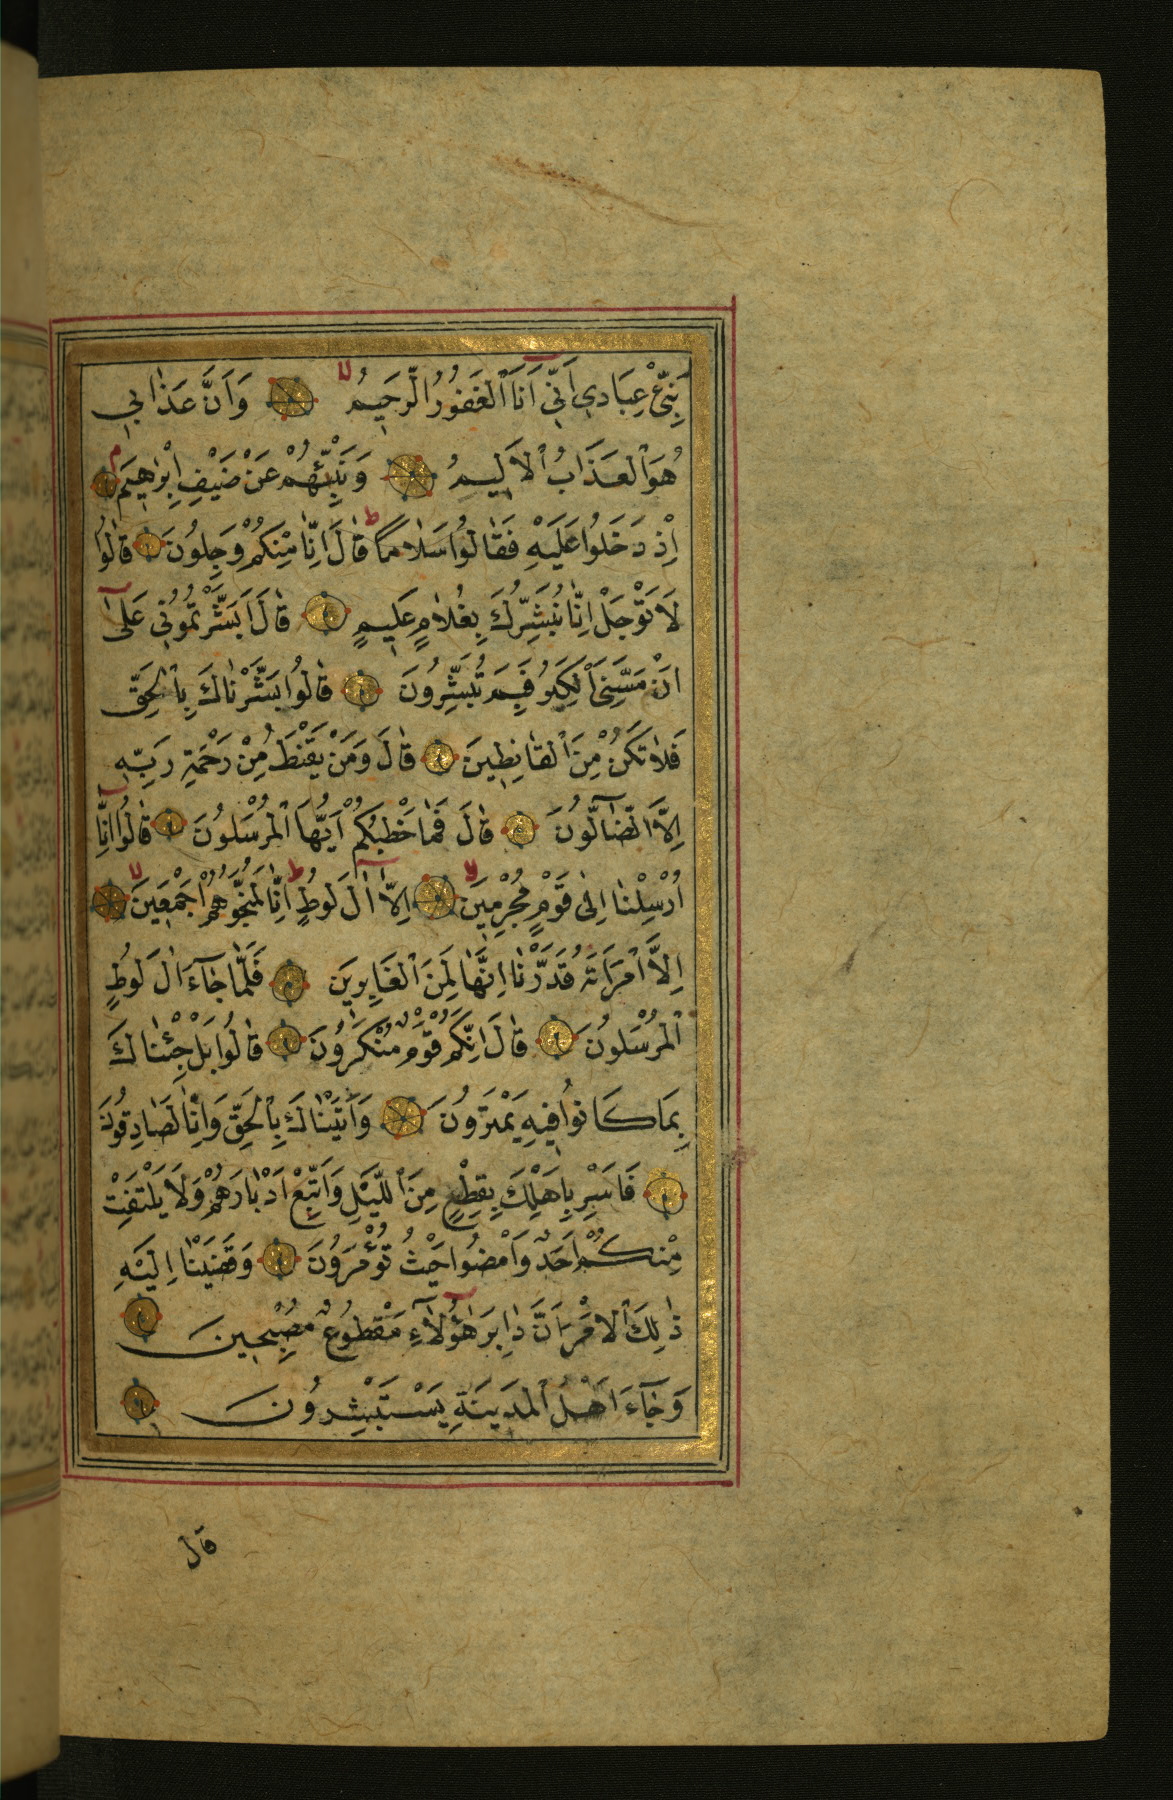 نَبِّئْ عِبَادِى اَنِّى اَنَا الْغَفُورُ الرَّحِيمُ وَاَنَّ عَذَابِى
هُوَ الْعَذَابُ الْاَلِيمُ وَنَبِّئْهُمْ عَنْ ضَيْفِ اِبْرٰهِيمَ
اِذْ دَخَلُوا عَلَيْهِ فَقَالُوا سَلَامًا قَالَ اِنَّا مِنْكُمْ وَجِلُونَ قَالُوا
لَا تَوْجَلْ اِنَّا نُبَشِّرُكَ بِغُلَامٍ عَلِيمٍ قَالَ اَبَشَّرْتُمُونِى عَلٰى
اَنْ مَسَّنِىَ الْكِبَرُ فَبِمَ تُبَشِّرُونَ قَالُوا بَشَّرْنَاكَ بِالْحَقِّ
فَلَا تَكُنْ مِنَ الْقَانِطِينَ قَالَ وَمَنْ يَقْنَطُ مِنْ رَحْمَةِ رَبِّهِ
اِلَّا الضَّآلُّونَ قَالَ فَمَا خَطْبُكُمْ اَيُّهَا الْمُرْسَلُونَ قَالُوا اِنَّا
اُرْسِلْنَا اِلٰى قَوْمٍ مُجْرِمِينَ اِلَّا اٰلَ لُوطٍ اِنَّا لَمُنَجُّوهُمْ اَجْمَعِينَ
اِلَّا امْرَاَتَهُ قَدَّرْنَا اِنَّهَا لَمِنَ الْغَابِرِينَ فَلَمَّا جَآءَ اٰلَ لُوطٍ
الْمُرْسَلُونَ قَالَ اِنَّكُمْ قَوْمٌ مُنْكَرُونَ قَالُوا بَلْ جِئْنَاكَ
بِمَا كَانُوا فِيهِ يَمْتَرُونَ وَاَتَيْنَاكَ بِالْحَقِّ وَاِنَّا لَصَادِقُونَ
فَاَسْرِ بِاَهْلِكَ بِقِطْعٍ مِنَ اللَّيْلِ وَاتَّبِعْ اَدْبَارَهُمْ وَلَا يَلْتَفِتْ
مِنْكُمْ اَحَدٌ وَامْضُوا حَيْثُ تُؤْمَرُونَ وَقَضَيْنَا اِلَيْهِ
ذٰلِكَ الْاَمْرَ اَنَّ دَابِرَ هٰٓؤُلَآءِ مَقْطُوعٌ مُصْبِحِينَ
وَجَآءَ اَهْلُ الْمَدِينَةِ يَسْتَبْشِرُونَ
قال